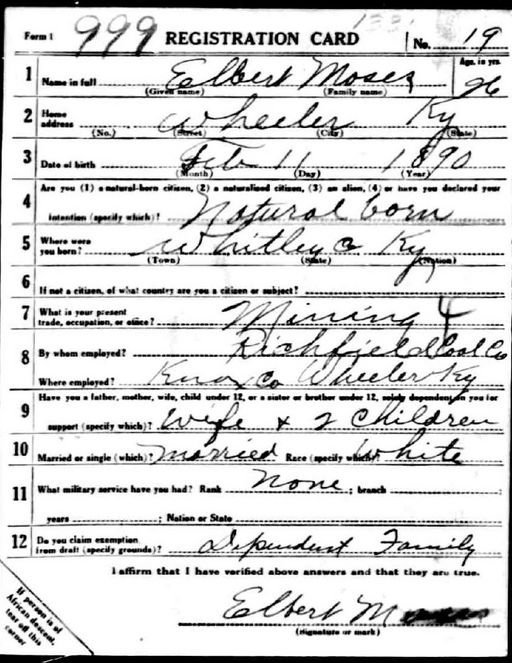 Form 1 999 REGISTRATION CARD No. 19
1 Name in full Elbert Moses Age, in yrs. 26
(Given name) (Family name)
2 Home address Wheeler Ky
(No.) (Street) (City) (State)
3 Date of birth Feb 11 1890
(Month) (Day) (Year)
4 Are you (1) a natural-born citizen, (2) a naturalized citizen, (3) an alien, (4) or have you declared your
intention (specify which)? Natural born
5 Where were you born? Whitley Co Ky
(Town) (State) (Nation)
6 If not a citizen, of what country are you a citizen or subject?
7 What is your present trade, occupation, or office? Mining 4
8 By whom employed? Richfield Coal Co
Where employed? Knox Co Wheeler Ky
9 Have you a father, mother, wife, child under 12, or a sister or brother under 12, solely dependent on you for
support (specify which)? Wife & 2 Children
10 Married or single (which)? Married Race (specify which)? White
11 What military service have you had? Rank None ; branch ;
years ; Nation or State
12 Do you claim exemption from draft (specify grounds)? Dependent Family
I affirm that I have verified above answers and that they are true.
If person is of
African descent,
tear off this
corner
Elbert Moses
(Signature or mark)